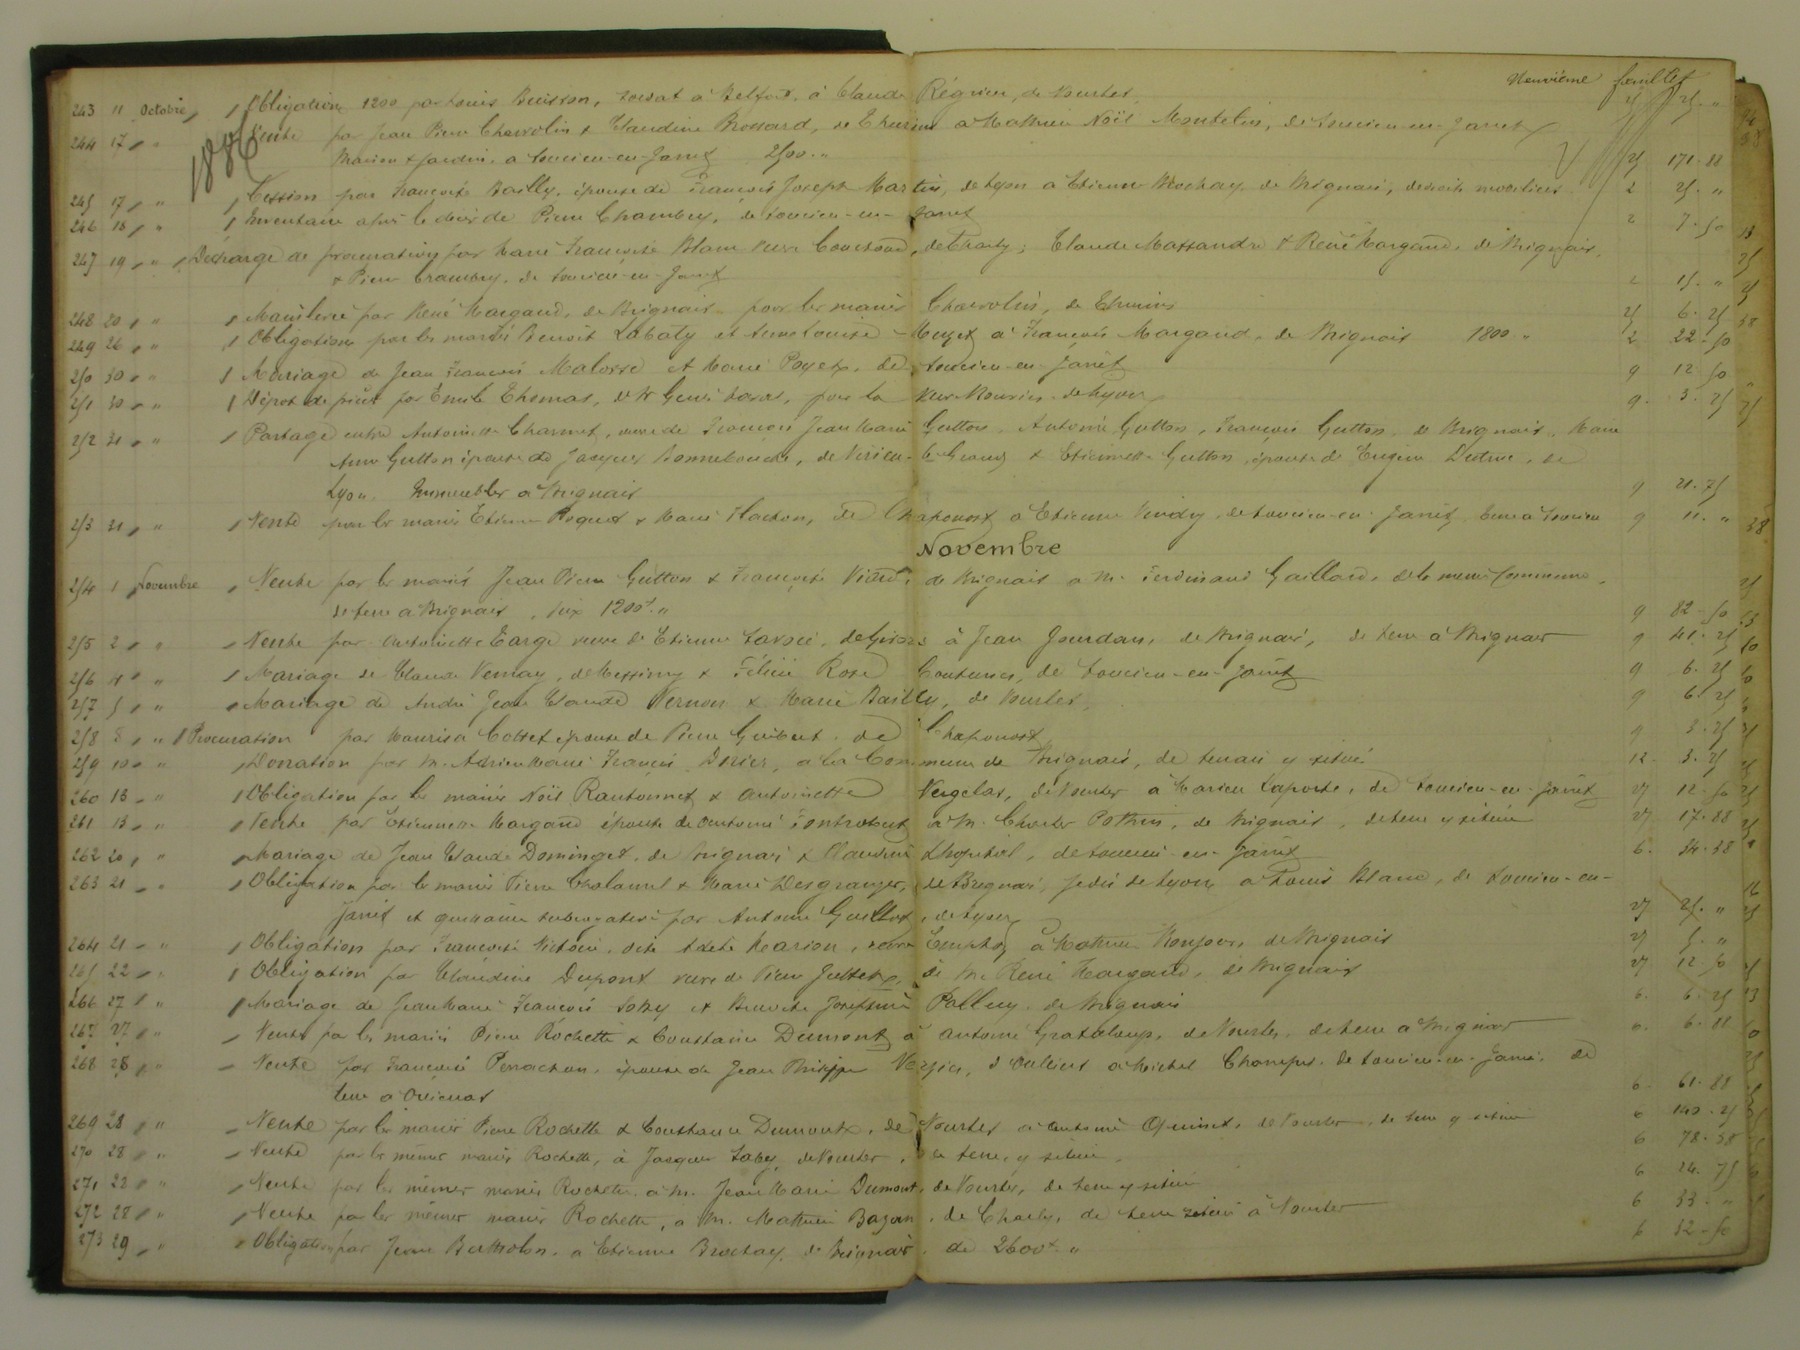 Neuvième feuillet
243 11 Octobre Obligation 1200 par Louis Buisson, soldat à Belfort, à Claude Régnier, de Vourles 25 "
1886
244 17 " " Vente par Jean Pierre Chavrolin & Claudine Brossard, de Thurins a Mathieu Noël Montelin, de Soucieu-en-Jarret
Maison & Jardin, a Soucieu-en-Jarret 2500 " 25 171.88
245 17 " " Cession par Françoise Bailly, épouse de François Joseph Martin, de Lyon a Etienne Brochay de Brignais, droits mobiliers 2 25 "
246 18 " " Inventaire après le décès de Pierre Chambry, de Soucieu-en-Jarret 2 7.50
247 19 " " Décharge de procuration par Marie Françoise Blanc veuve Couchoud, de Charly; Claude Massandre & René Margand, de Brignais,
& Pierre Chambry, de Soucieu-en-Jarret 2 15 "
248 20 " " Mainlevée par René Margand, de Brignais pour les mariés Chavrolin, de Thurins 25 6.25
249 26 " " Obligation par les mariés Benoit Labaty et Anne Louise à François Margand, de Brignais 1800 " 2 22.50
250 30 " " Mariage de Jean François Malosse et Marie Poyet, de Soucieu-en-Jarret 9 12.50
251 30 " " Dépot de pièces par Emile Thomas, de St Genis Laval, pour la Veuve de Lyon 9 3.75
252 31 " " Partage entre Antoinette Charmet, veuve de François Jean Marie Gutton, Antoine Gutton, François Gutton, de Brignais, Marie
Anne Gutton épouse de Jacques Bonnebouche, de Virieu-le-Grand & Etiennette Gutton, épouse de Eugène de
Lyon. Immeubles a Brignais 9 21.75
253 31 " " Vente par les mariés Etienne Poquet & Marie Flachon, de Chaponost a Etienne Vindry, de Soucieu-en-Jarret, terre a Soucieu 9 11 "
Novembre
254 1 Novembre Vente par les mariés Jean Pierre Gutton & Françoise Viard, de Brignais a M. Ferdinand Gaillard, de la meme commune,
de terre a Brignais, prix 1200f " 9 82.50
255 2 " " Vente par Antoinette Large veuve de Etienne de Givors à Jean Jourdan, de Brignais, de terre à Brignais 9 41.25
256 4 " " Mariage de Claude Vernay, de Messimy & Félicie Rose de Soucieu-en-Jarret 9 6.25
257 5 " " Mariage de André Jean Claude Vernon & Marie Bailly, de Vourles, 9 6.25
258 8 " " Procuration par Maurisa Cottet épouse de Pierre Guibert, de Chaponost 9 3.75
259 10 " " Donation par M. Adrien Marie François a la Commune de Brignais, de terrain y situé 12 3.75
260 13 " " Obligation par les mariés Noël Rautonnet & Antoinette Vergelas, de Vourles à Marien Laporte, de Soucieu-en-Jarret 27 12.50
261 13 " " Vente par Etiennette Margand épouse de Antoine à M. Charles Pothin, de Brignais, de terre y située 27 17.88
262 20 " " Mariage de Jean Claude Dominget, de Brignais & Claudine Lhopital, de Soucieu-en-Jarret 6 34.38
263 21 " " Obligation par les mariés Pierre Cholamel & Marie Desgranges, de Brignais, jadis de Lyon a Louis Blanc, de Soucieu-en-
Jarret et quittance subrogative par Antoine Guillot, de Lyon 27 25 "
264 21 " " Obligation par Françoise Victoire, dite Adèle Marion, veuve à Mathieu Monjour, de Brignais 27 5 "
265 22 " " Obligation par Claudine Dupont veuve de Pierre de M. René Margand, de Brignais 27 12.50
266 27 " " Mariage de Jean Marie François & Benoite Josephine Palluy, de Brignais 6 6.25
267 27 " " Vente par les mariés Pierre Rochette & Constance Dumont à Antoine Grataloup, de Vourles, de terre a Brignais 6 6.88
268 28 " " Vente par Françoise Perrachon, épouse de Jean Philippe d'Oullins a Michel de Soucieu-en-Jarret, de
terre à Orliénas 6 61.88
269 28 " " Vente par les mariés Pierre Rochette & Constance Dumont, de Vourles a Antoine de Vourles, de terre y située 6 140.25
270 28 " " Vente par les mêmes mariés Rochette, à Jacques de Vourles, de terre, y située, 6 78.38
271 28 " " Vente par les mêmes mariés Rochette, a M. Jean Marie Dumont, de Vourles, de terre y située 6 24.75
272 28 " " Vente par les mêmes mariés Rochette, a M. Mathieu Bazan, de Charly, de terre située à Vourles 6 33 "
273 29 " Obligation par Jean Bertholon, a Etienne Brochay, de Brignais, de 2600f " 6 32.50